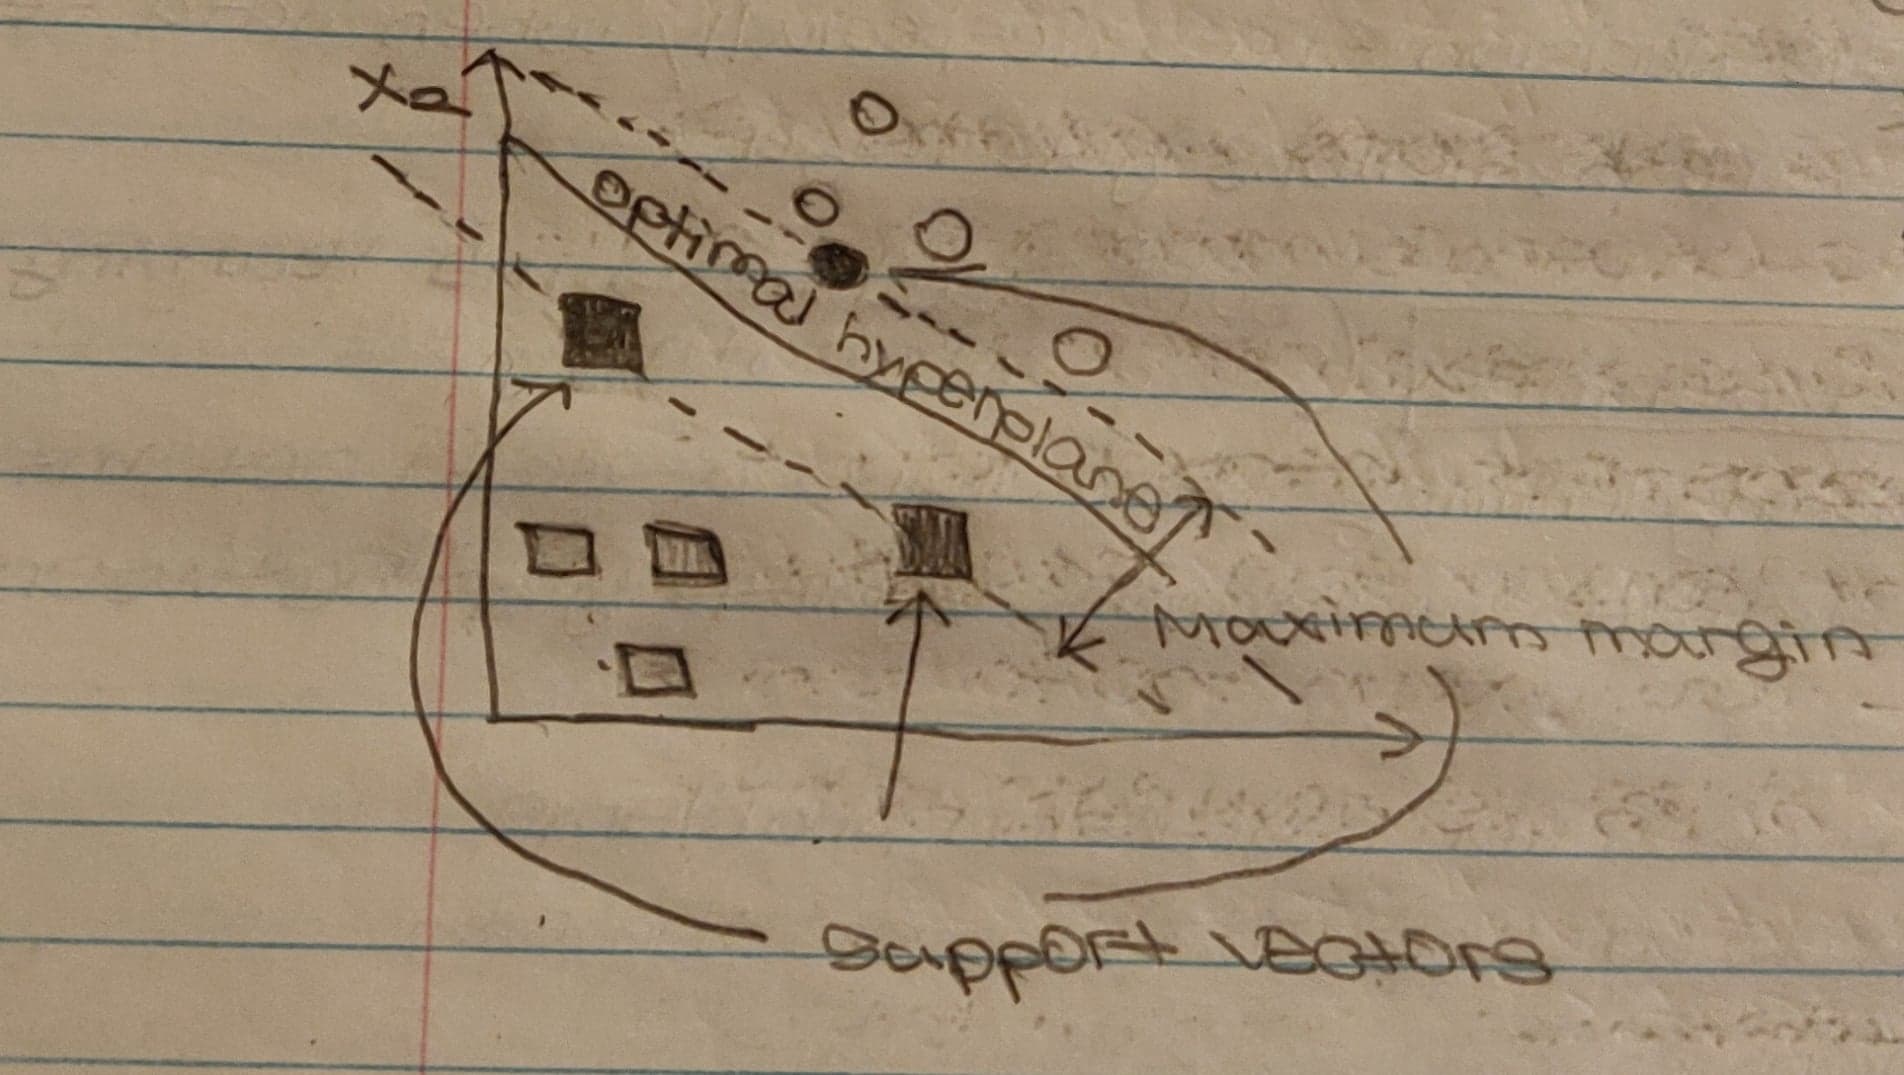 X2
optimal hyperplane
Maximum margin
Support vectors